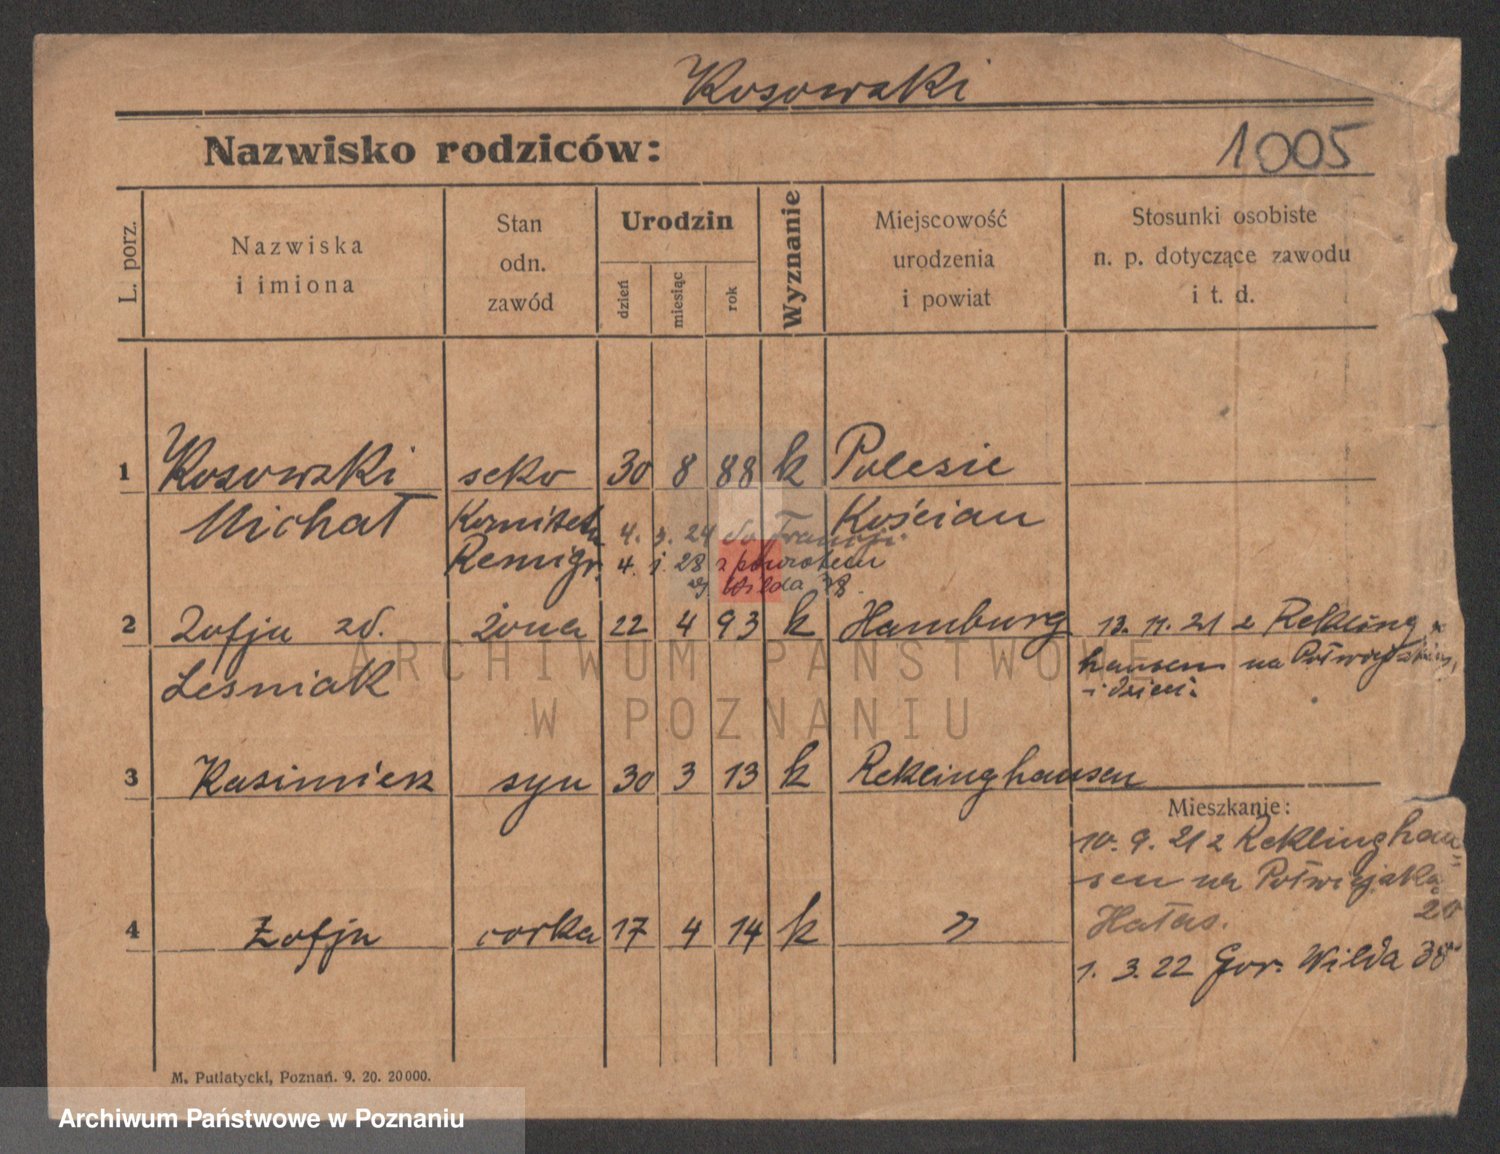 Kosowski
Nazwisko rodziców:
1005
L. porz.
Nazwiska
i imiona
Stan
odn.
zawód
Urodzin
dzień
miesiąc
rok
Wyznanie
Miejscowość
urodzenia
i powiat
Stosunki osobiste
n. p. dotyczące zawodu
i t. d.
1 Kosowski sekr 30 8 88 k Polesie
Michał Komitetu Kościan
4. 3. 24 do Francji
Remigr. 4. 1. 28 z powrotem
Wilda 38.
2 Zofja zd. żona 22 4 93 k Hamburg 13. 11. 21 z Rekling
Leśniak hausen na Półwiejską
i dzieci.
ARCHIWUM PAŃSTWOWE
W POZNANIU
3 Kasimierz syn 30 3 13 k Reklinghausen
Mieszkanie:
10. 9. 21 z Reklinghau
sen na Półwiejska
Hałas. 20
4 Zofja corka 17 4 14 k "
1. 3. 22 Gor. Wilda 38
M. Putiatycki, Poznań. 9. 20. 20000.
Archiwum Państwowe w Poznaniu